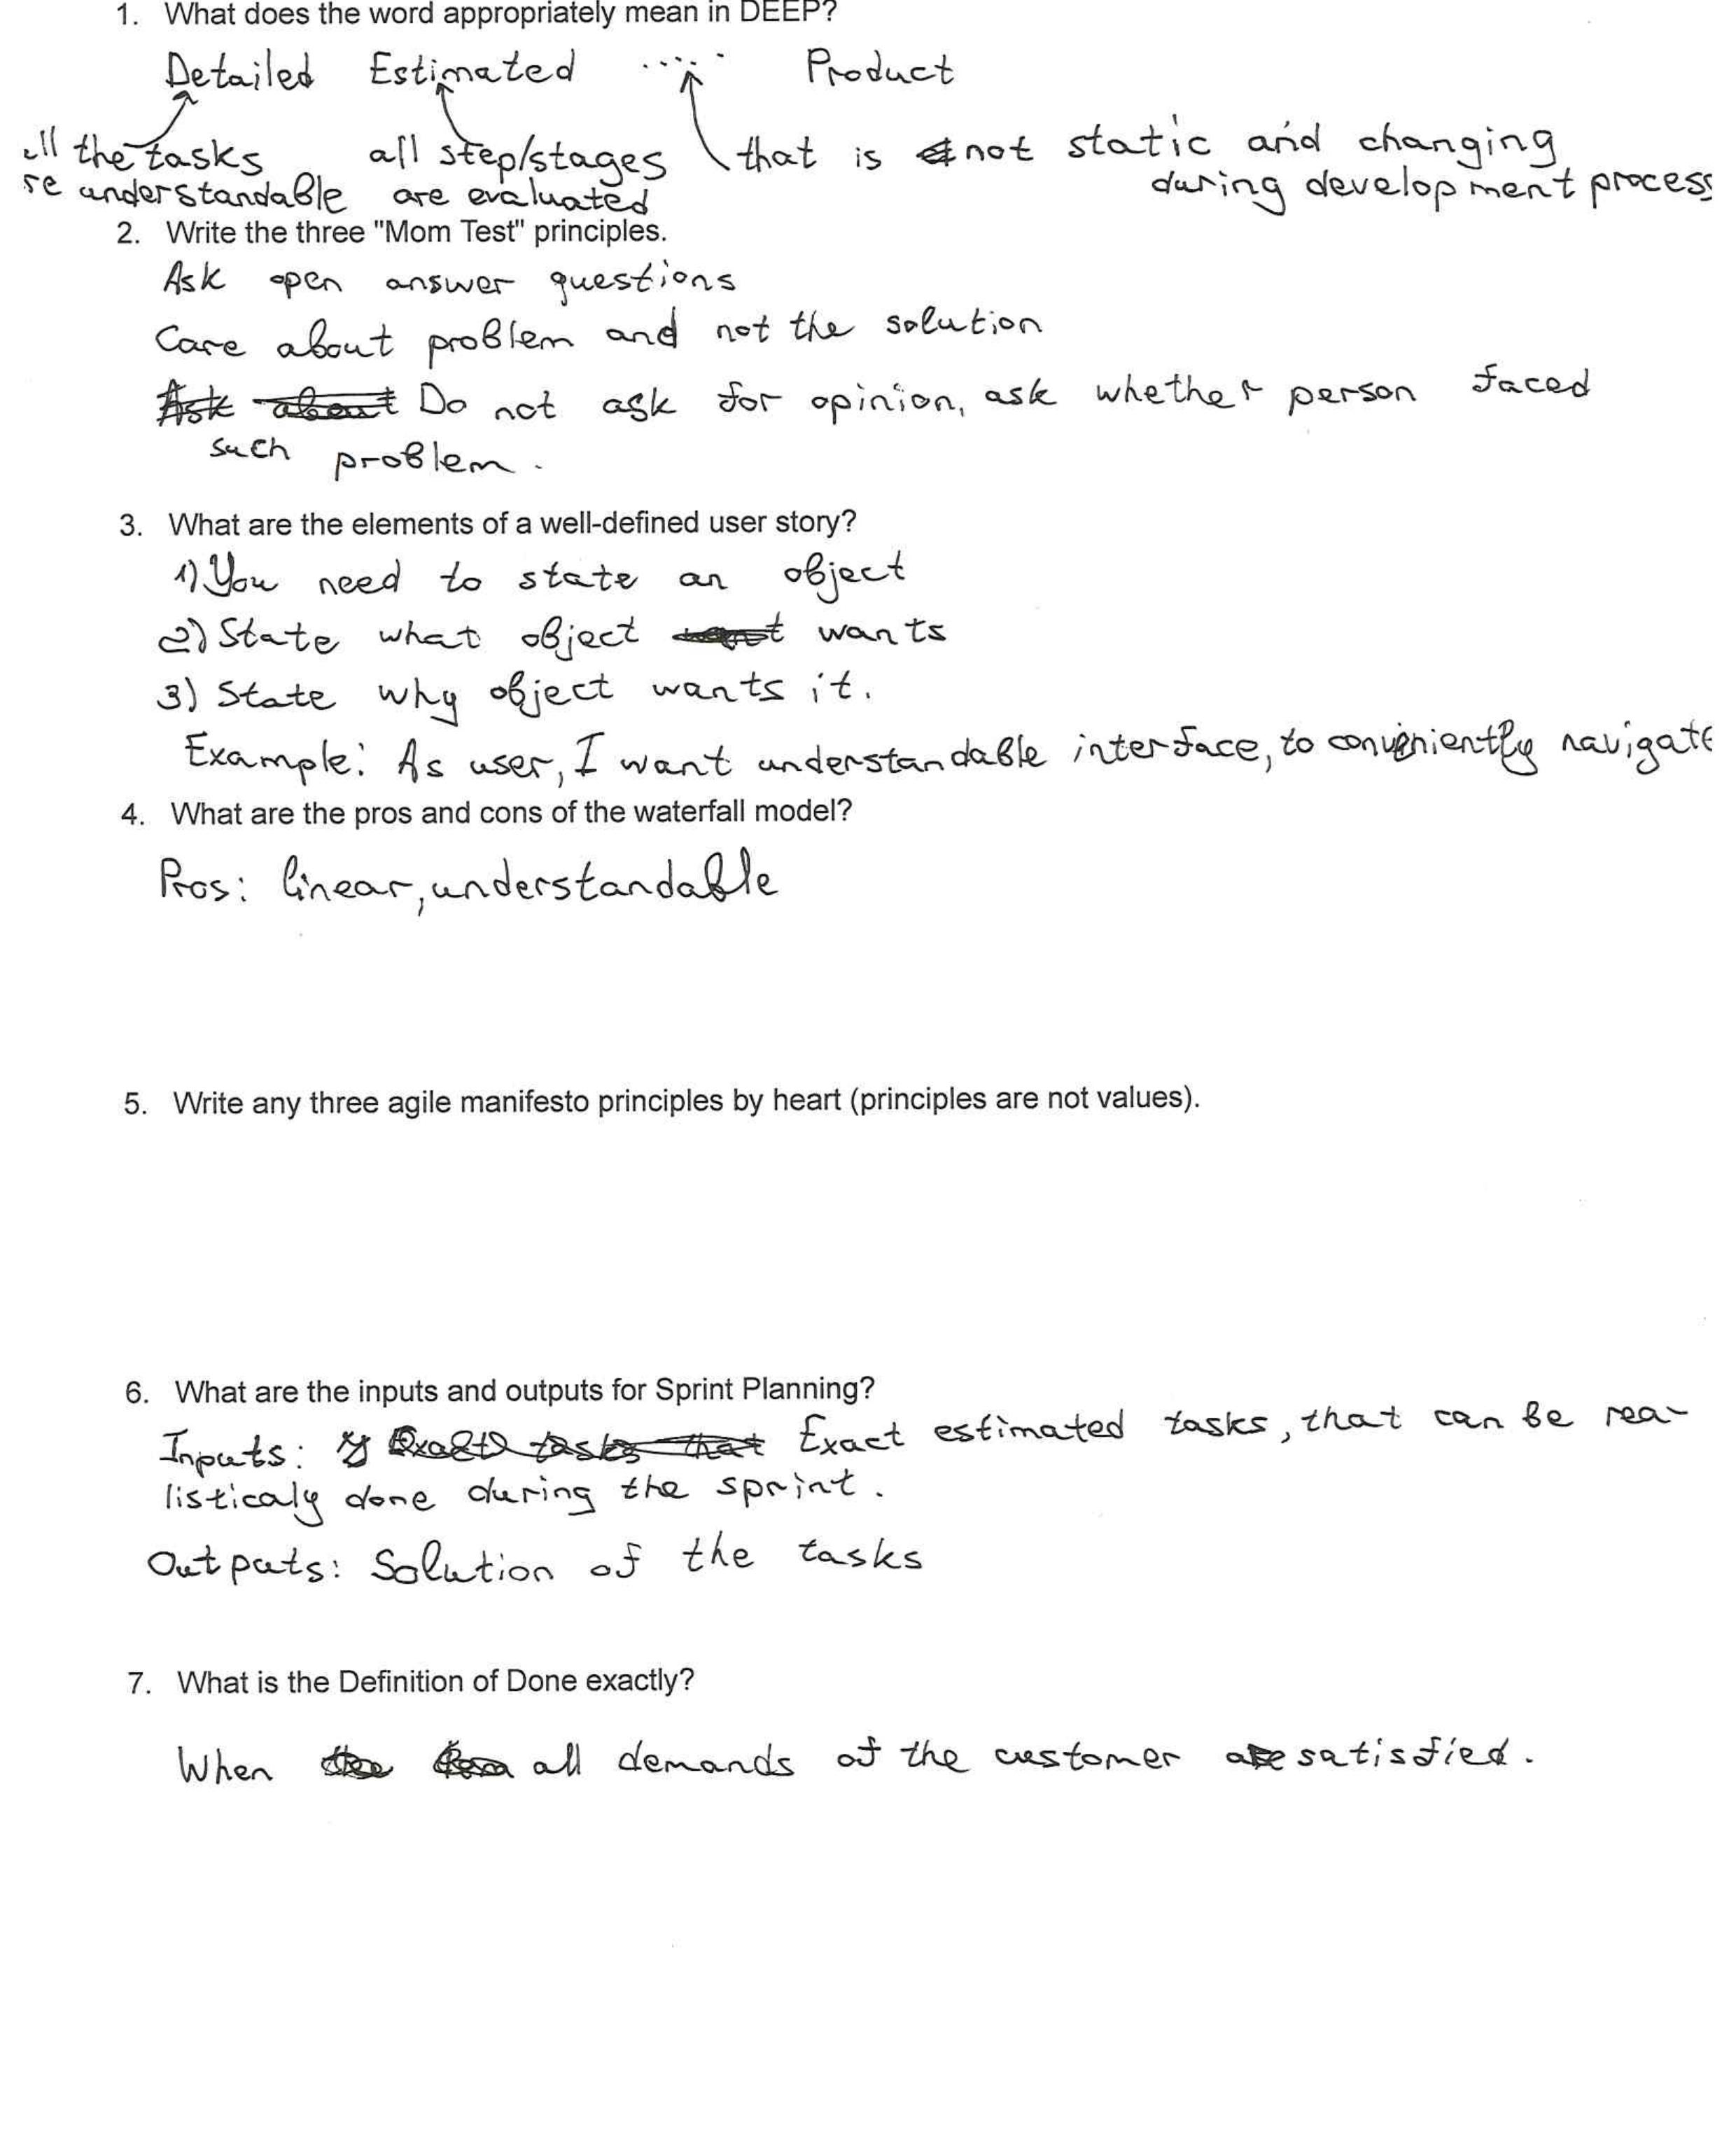 1. What does the word appropriately mean in DEEP?
Detailed Estimated ..... Product
all the tasks all step/stages that is not static and changing
re understandable are evaluated during development process
2. Write the three "Mom Test" principles.
Ask open answer questions
Care about problem and not the solution
Ask about Do not ask for opinion, ask whether person faced
such problem.
3. What are the elements of a well-defined user story?
1) You need to state an object
2) State what object want wants
3) State why object wants it.
Example: As user, I want understandable interface, to conveniently navigate
4. What are the pros and cons of the waterfall model?
Pros: linear, understandable
5. Write any three agile manifesto principles by heart (principles are not values).
6. What are the inputs and outputs for Sprint Planning?
Inputs: tasks that Exact estimated tasks, that can be rea-
listicaly done during the sprint.
Outputs: Solution of the tasks
7. What is the Definition of Done exactly?
When the all demands of the customer are satisfied.